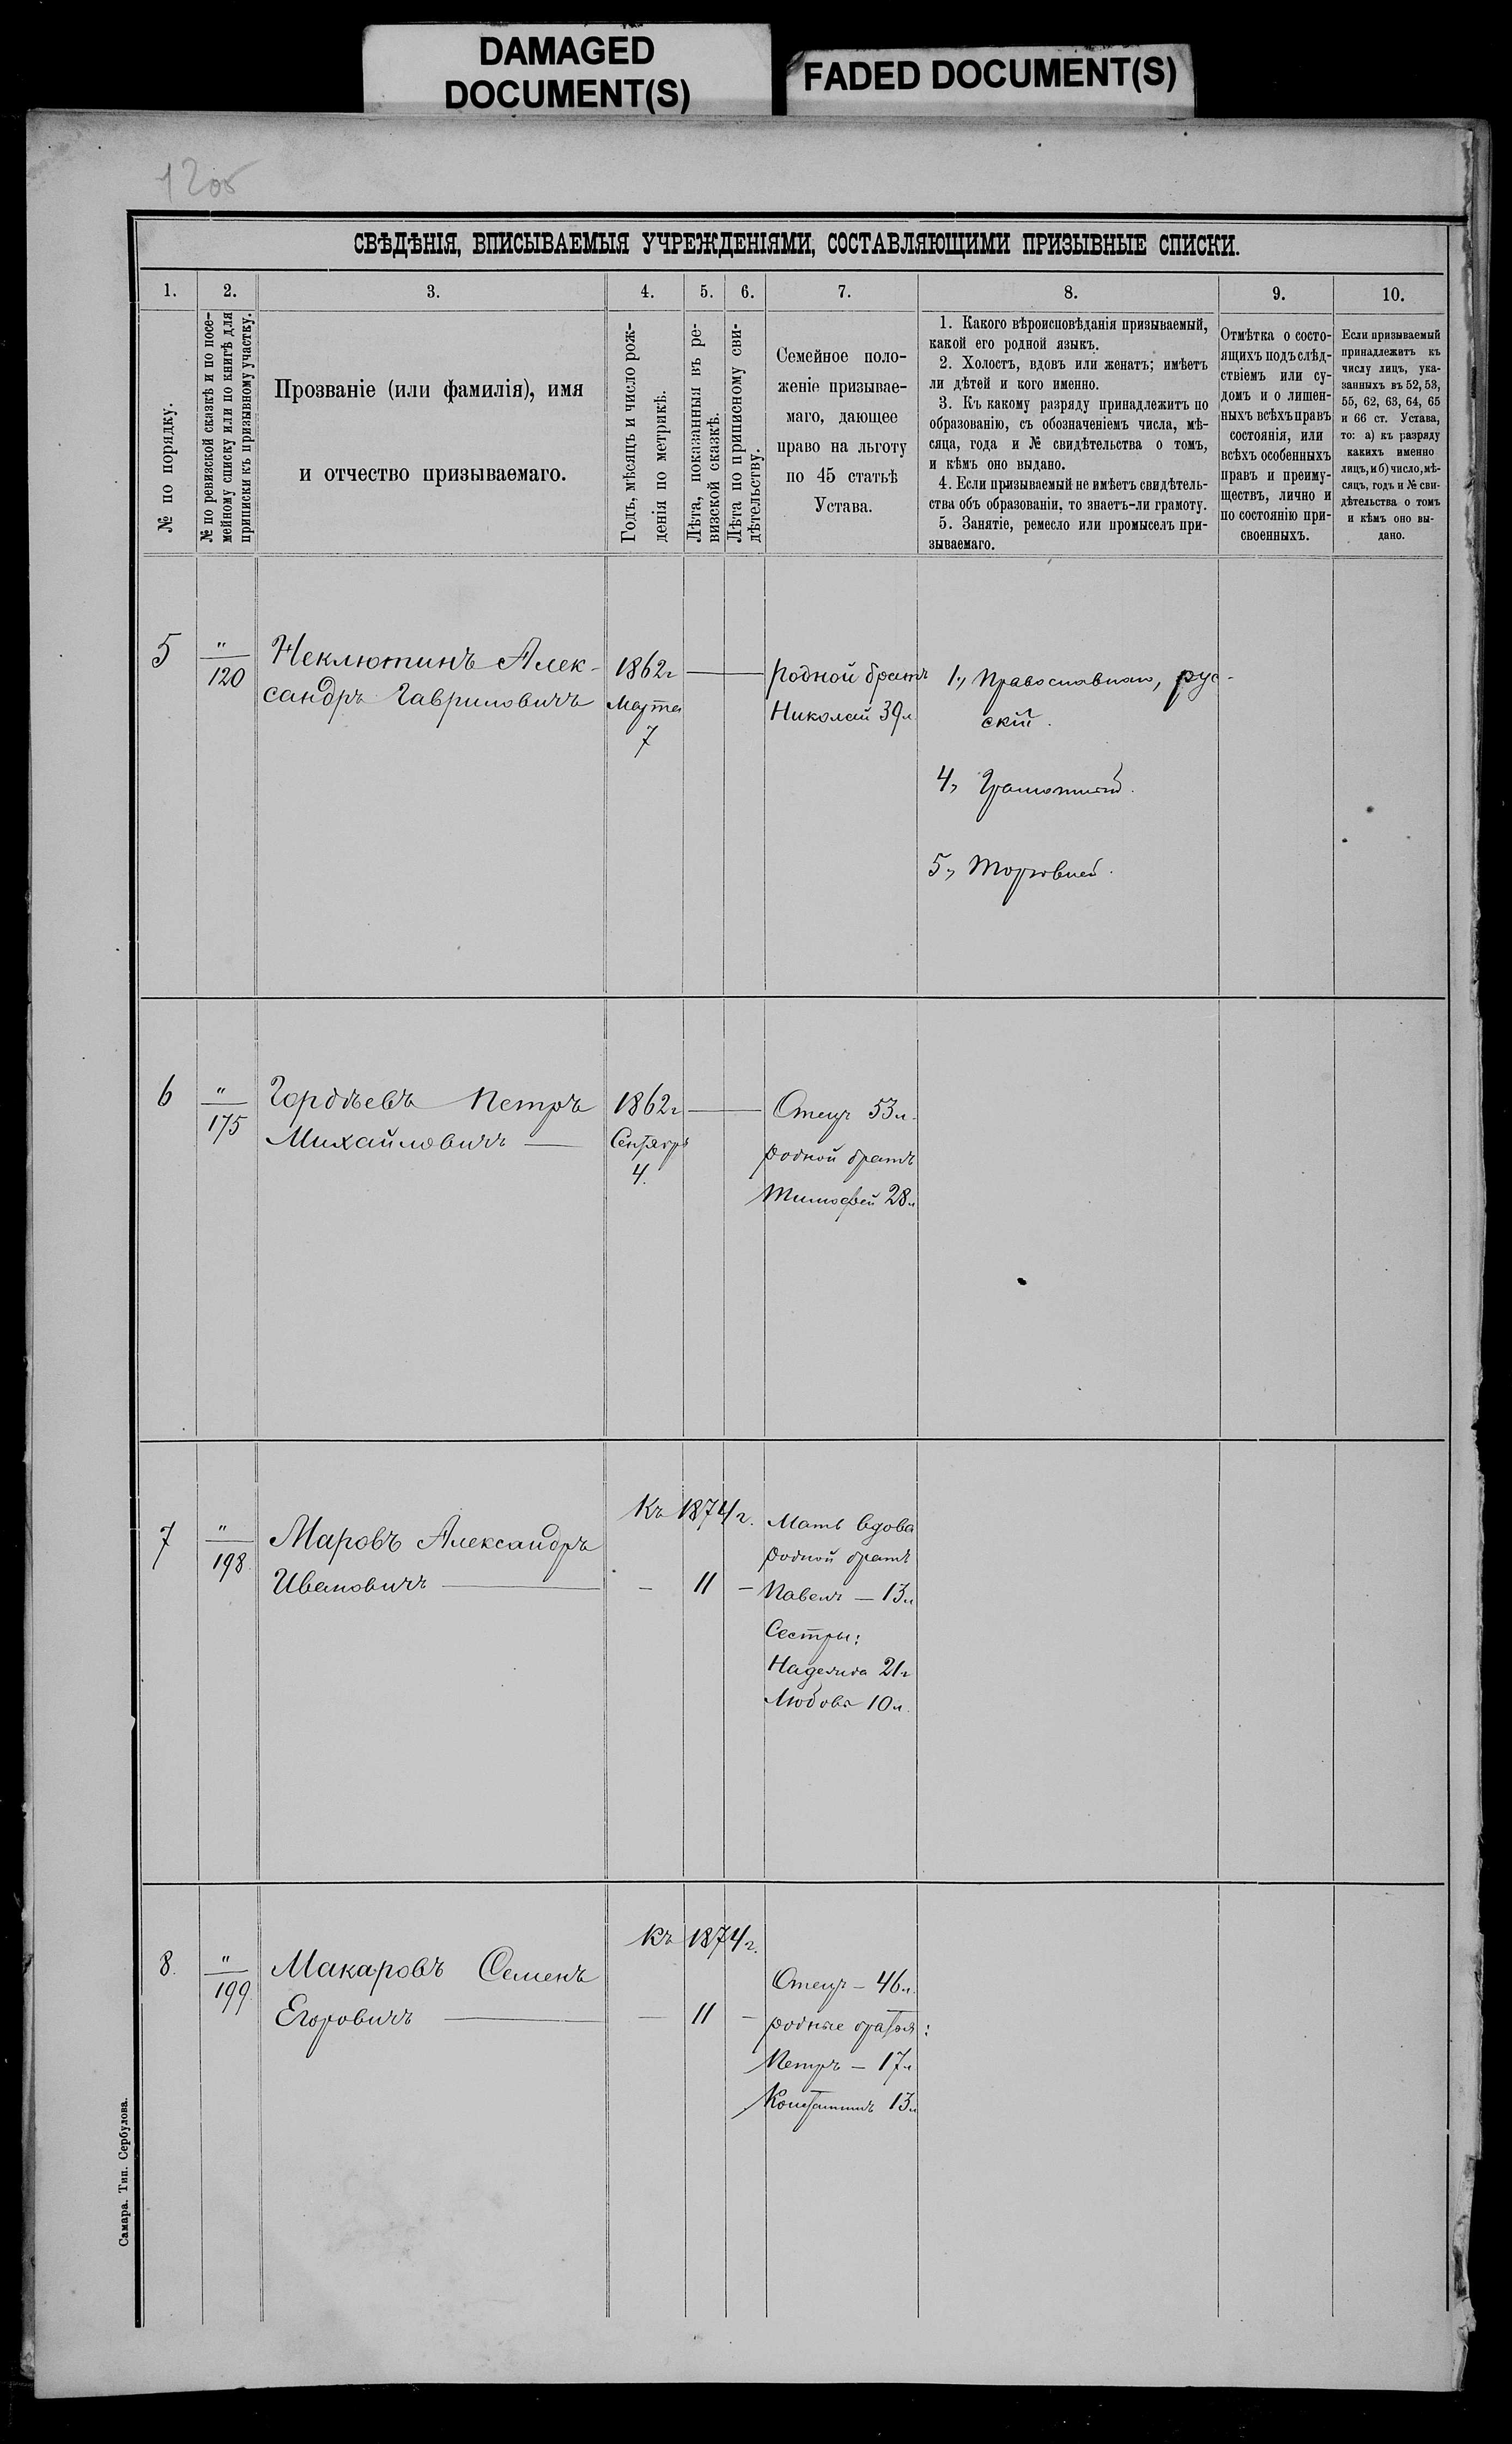 DAMAGED
DOCUMENT(S)
FADED DOCUMENT(S)
1205
СВѢДѢНІЯ, ВПИСЫВАЕМЫЯ УЧРЕЖДЕНІЯМИ, СОСТАВЛЯЮЩИМИ ПРИЗЫВНЫЕ СПИСКИ.
1. 2. 3. 4. 5. 6. 7. 8. 9. 10.
№ по порядку.
№ по ревизской сказкѣ и по посе-
мейному списку или по книгѣ для
приписки къ призывному участку.
Прозваніе (или фамилія), имя
и отчество призываемаго.
Годъ, мѣсяцъ и число рож-
денія по метрикѣ.
Лѣта, показанныя въ ре-
визской сказкѣ.
Лѣта по приписному сви-
дѣтельству.
Семейное поло-
женіе призывае-
маго, дающее
право на льготу
по 45 статьѣ
Устава.
1. Какого вѣроисповѣданія призываемый,
какой его родной языкъ.
2. Холостъ, вдовъ или женатъ; имѣетъ
ли дѣтей и кого именно.
3. Къ какому разряду принадлежитъ по
образованію, съ обозначеніемъ числа, мѣ-
сяца, года и № свидѣтельства о томъ,
и кѣмъ оно выдано.
4. Если призываемый не имѣетъ свидѣтель-
ства объ образованіи, то знаетъ-ли грамоту.
5. Занятіе, ремесло или промыселъ при-
зываемаго.
Отмѣтка о состо-
ящихъ подъ слѣд-
ствіемъ или су-
домъ и о лишен-
ныхъ всѣхъ правъ
состоянія, или
всѣхъ особенныхъ
правъ и преиму-
ществъ, лично и
по состоянію при-
своенныхъ.
Если призываемый
принадлежитъ къ
числу лицъ, ука-
занныхъ въ 52, 53,
55, 62, 63, 64, 65
и 66 ст. Устава,
то: а) къ разряду
какихъ именно
лицъ, и б) число, мѣ-
сяцъ, годъ и № сви-
дѣтельства о томъ
и кѣмъ оно вы-
дано.
5
"
120
Неклютинъ Алек-
сандръ Гавриловичъ
1862г
Марта
7
родной братъ
Николай 39л
1., Православнаго, рус-
скій.
4, Грамотный.
5, Торговлей.
6
"
175
Гордѣевъ Петръ
Михайловичъ —
1862г
Сентября
4.
Отецъ 53л.
родной братъ
Тимофей 28л
7
"
198
Маровъ Александръ
Ивановичъ —
Къ 1874г.
— 11 —
Мать вдова
родной братъ
Павелъ — 13л
Сестры:
Надежда 21г
Любовь 10л.
8.
"
199
Макаровъ Семенъ
Егоровичъ —
Къ 1874г.
— 11 —
Отецъ — 46л.
родные братья:
Петръ — 17л
Константинъ 13л
Самара. Тип. Сербулова.